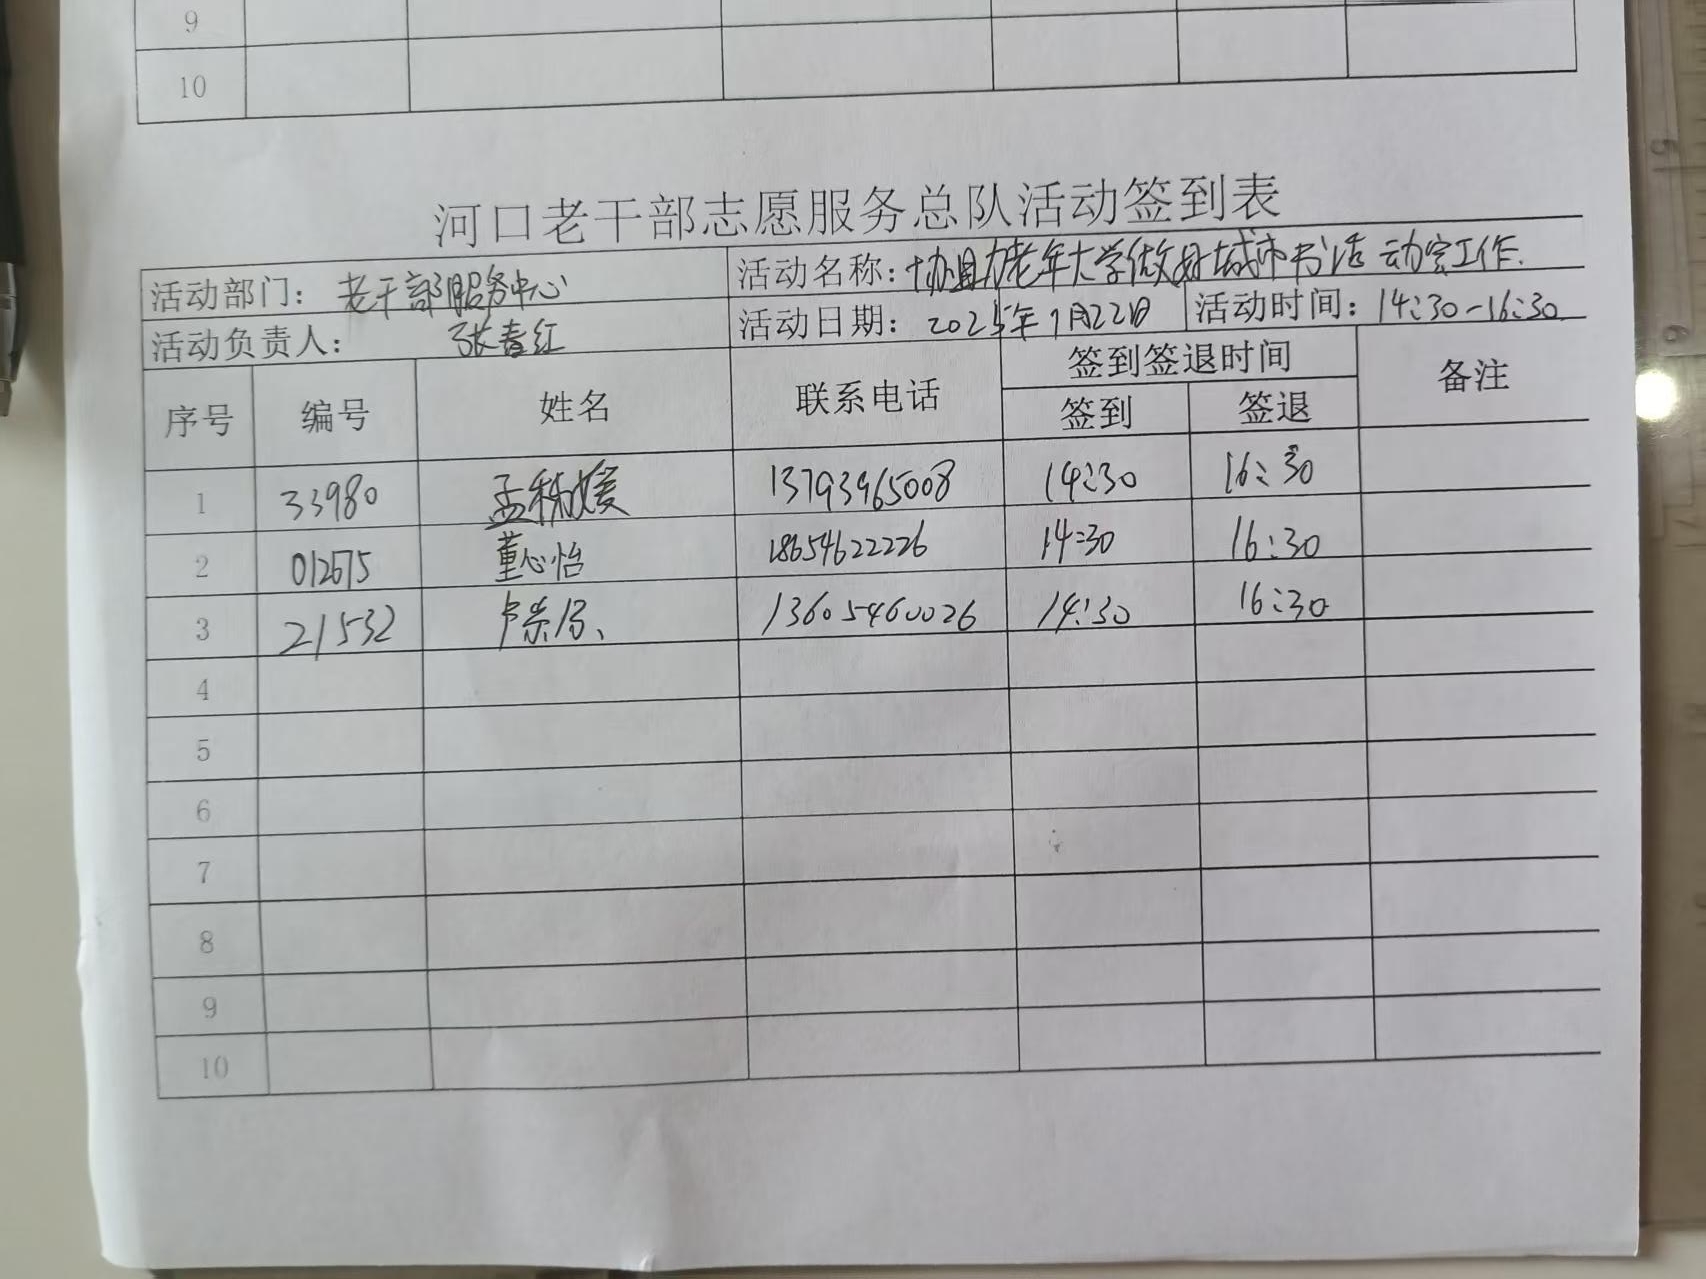 9
10
河口老干部志愿服务总队活动签到表
活动部门：老干部服务中心 活动名称：协助老年大学做好城市书活动室工作.
活动负责人：张春红 活动日期：2025年1月22日 活动时间：14:30-16:30
序号 编号 姓名 联系电话 签到签退时间 备注
签到 签退
1 33980 孟秋媛 13793965008 14:30 16:30
2 012675 董心怡 18654622226 14:30 16:30
3 21532 卢 13605460026 14:30 16:30
4
5
6
7
8
9
10